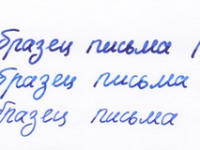 бразец письма
бразец письма
бразец письма